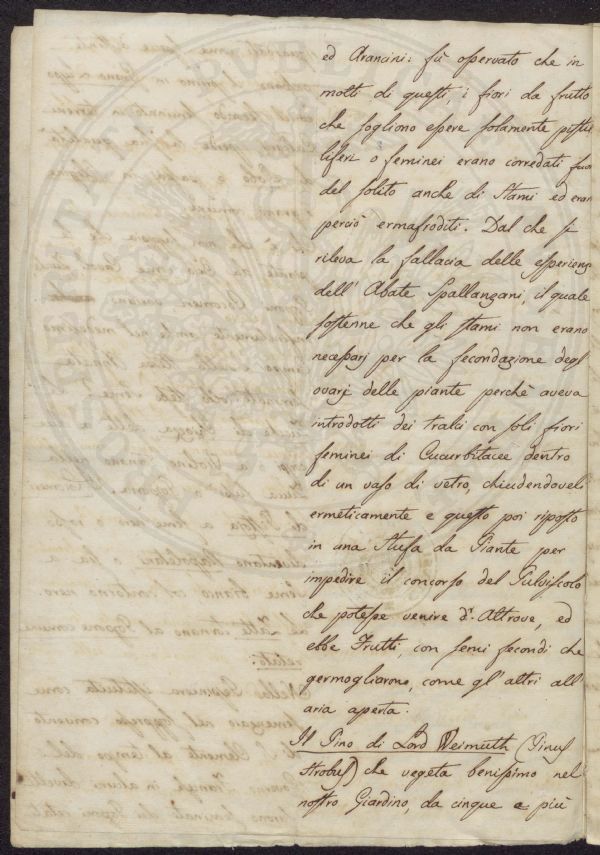 ed Arancini: fù osservato che in
molti di questi, i fiori da frutto
che sogliono essere solamente pistil
liferi o feminei erano corredati fuor
del solito anche di stami ed eran
perciò ermafroditi. Dal che si
rileva la fallacia delle esperienz
dell' Abate Spallanzani, il quale
sostenne che gli stami non erano
necessarj per la fecondazione degl
ovarj delle piante perchè aveva
introdotti dei tralci con soli fiori
feminei di Cucurbitacee dentro
di un vaso di vetro, chiudendoveli
ermeticamente e questo poi riposto
in una stufa da Piante per
impedire il concorso del Pulviscolo
che potesse venire d'Altrove, ed
ebbe Frutti, con semi fecondi che
germogliarono, come gl'altri all'
aria aperta.
Il Pino di Lord Weimuth (Pinus
Strobus) che vegeta benissimo nel
nostro Giardino, da cinque e più